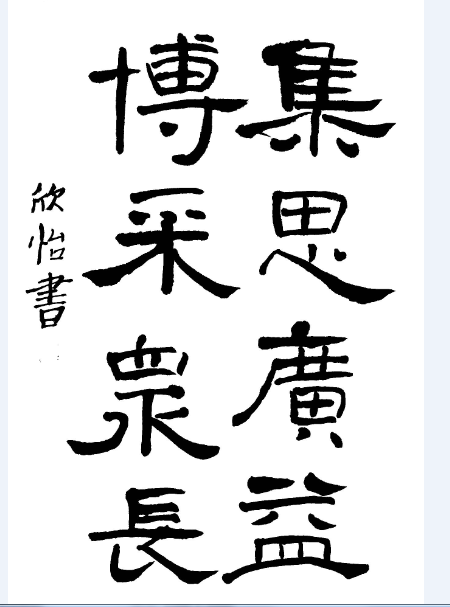 集思廣益
博采眾長
欣怡書